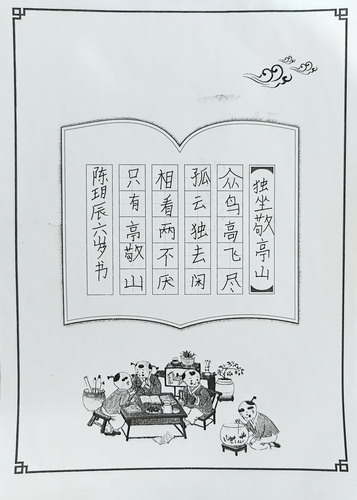 独坐敬亭山
众鸟高飞尽
孤云独去闲
相看两不厌
只有亭敬山
陈玥辰六岁书